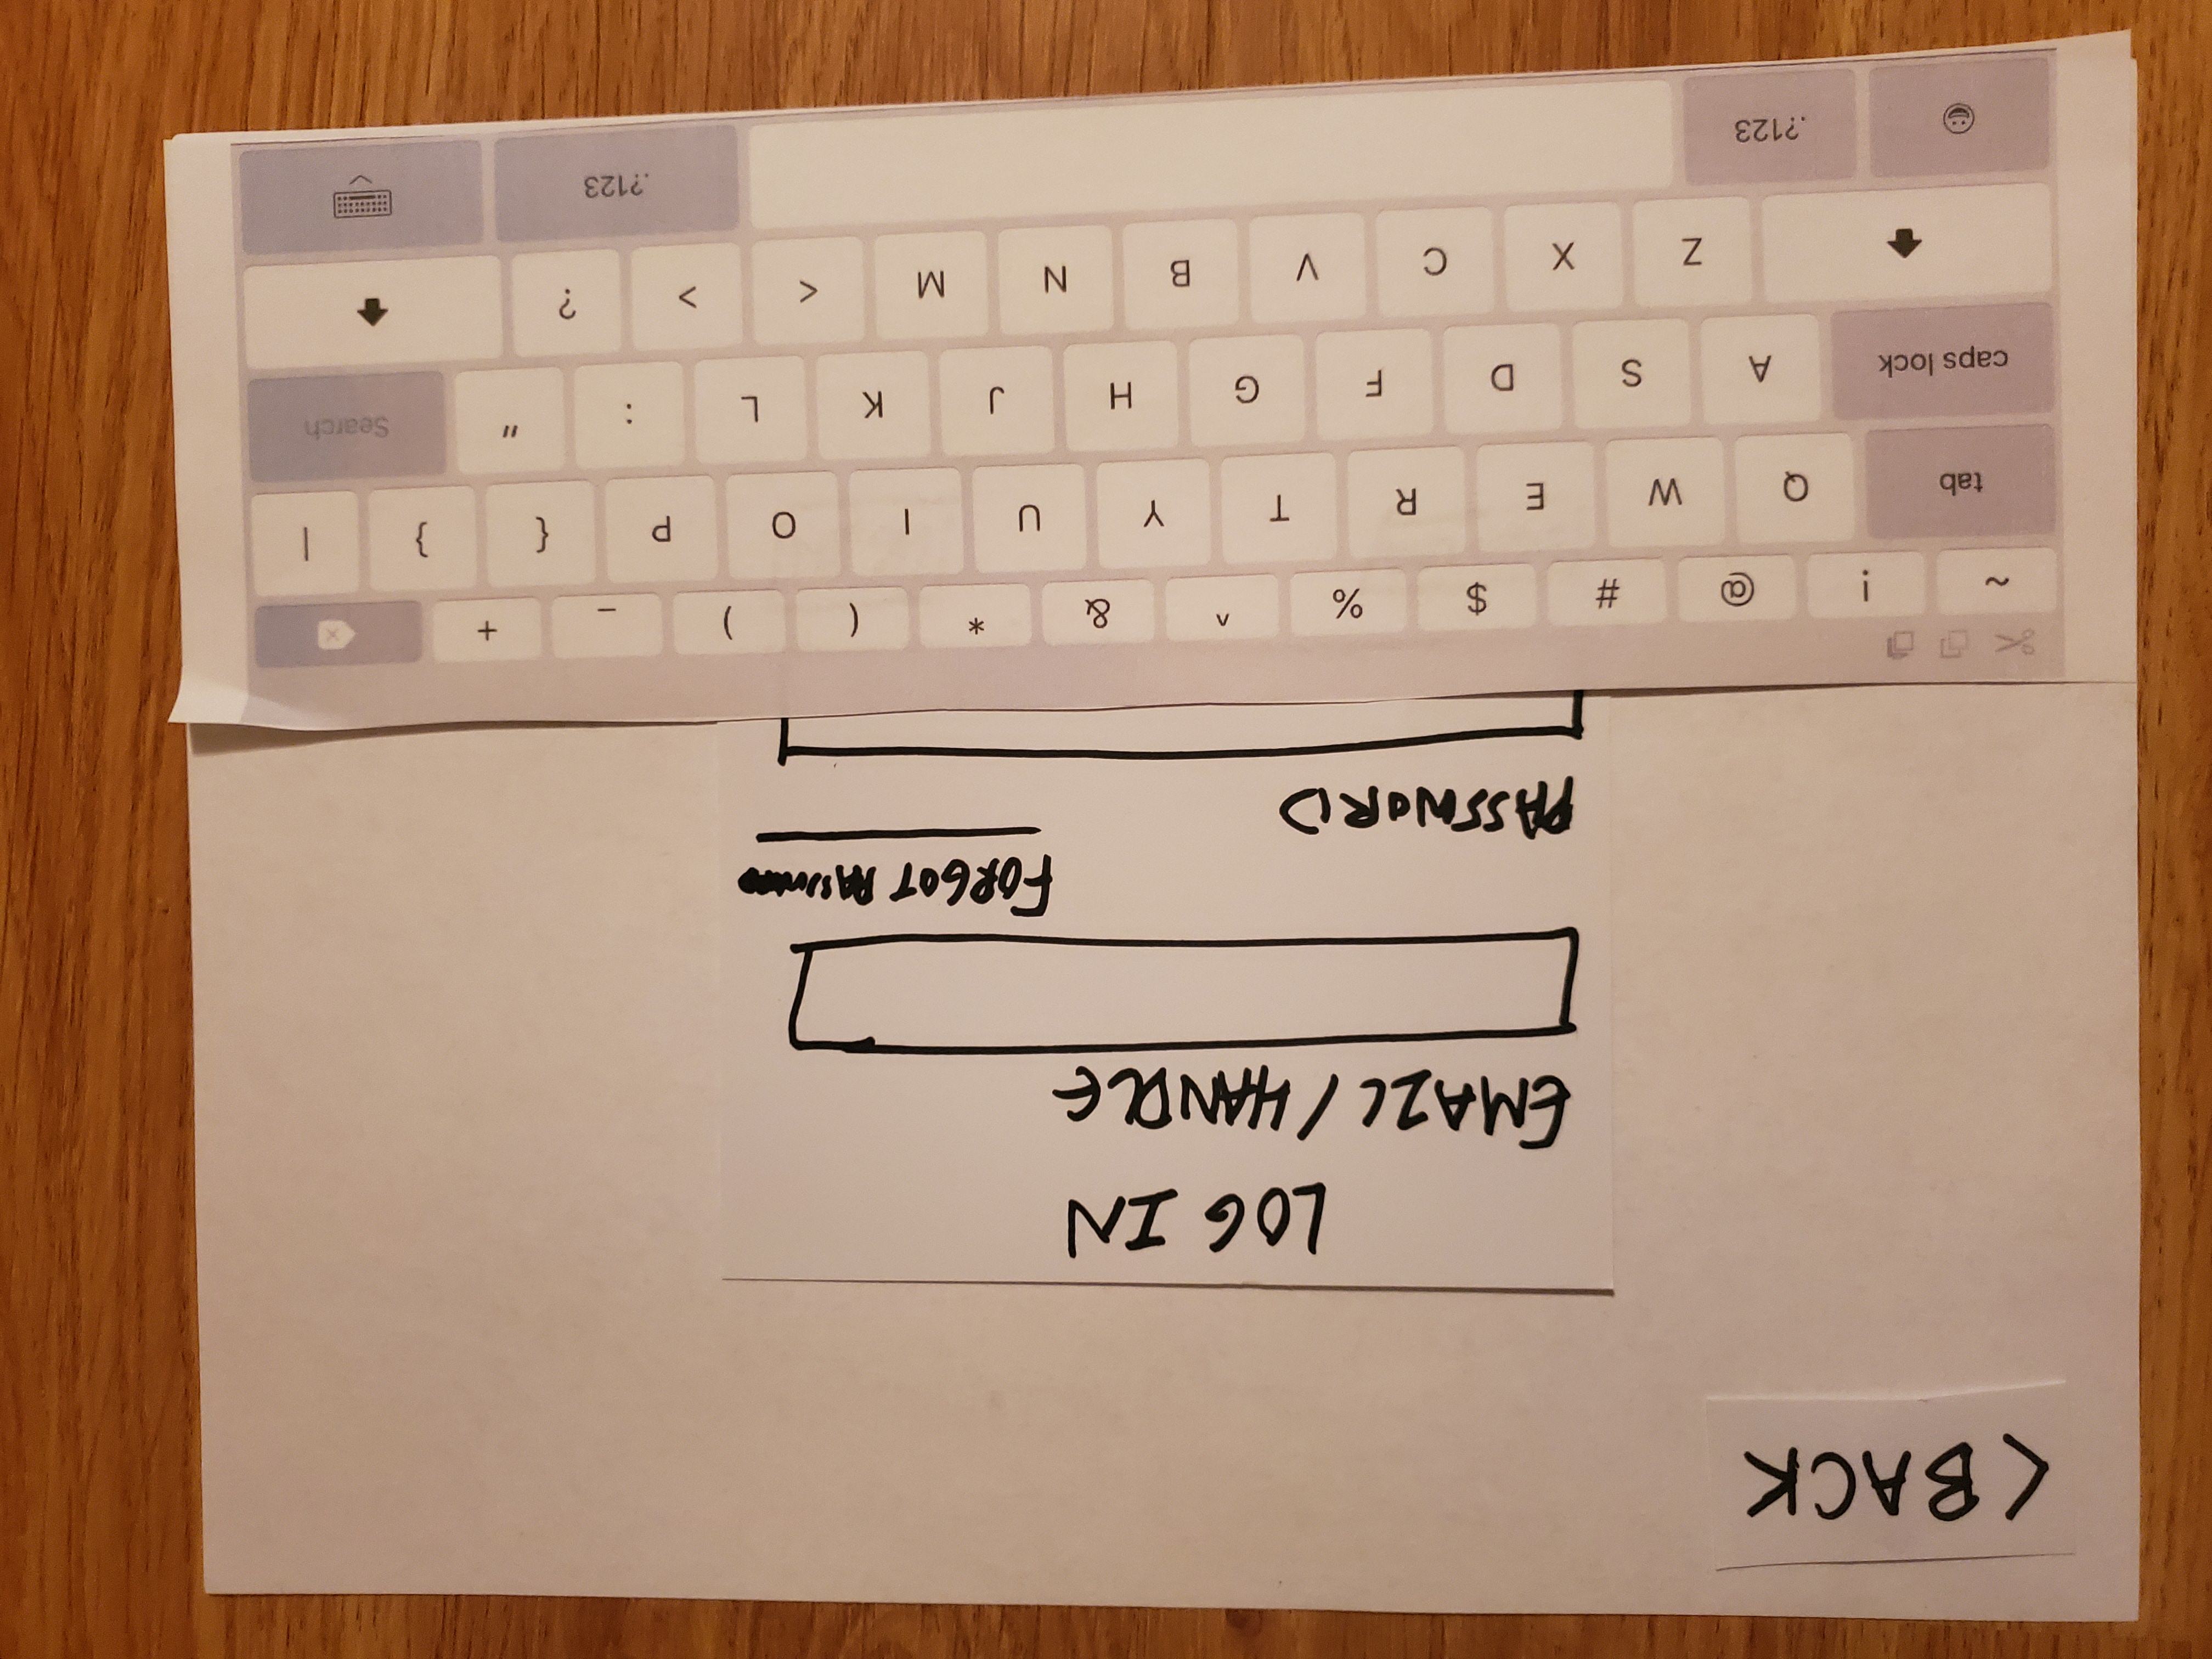 < BACK
LOG IN
EMAIL / HANDLE
FORGOT PASSWORD
PASSWORD
~ ! @ # $ % ^ & * ( ) _ +
tab Q W E R T Y U I O P { } |
caps lock A S D F G H J K L : " Search
Z X C V B N M < > ?
.?123 .?123